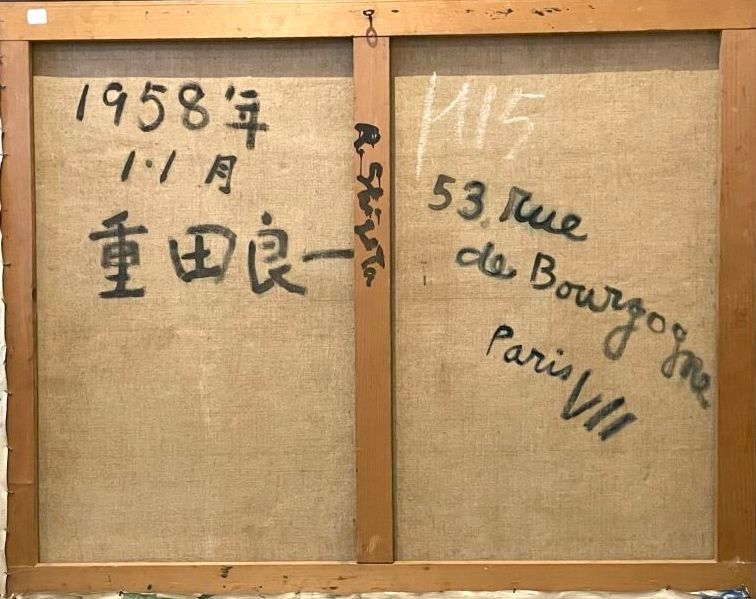 1958年
11月
重田良一
53. Rue
de Bourgogne
Paris
VII